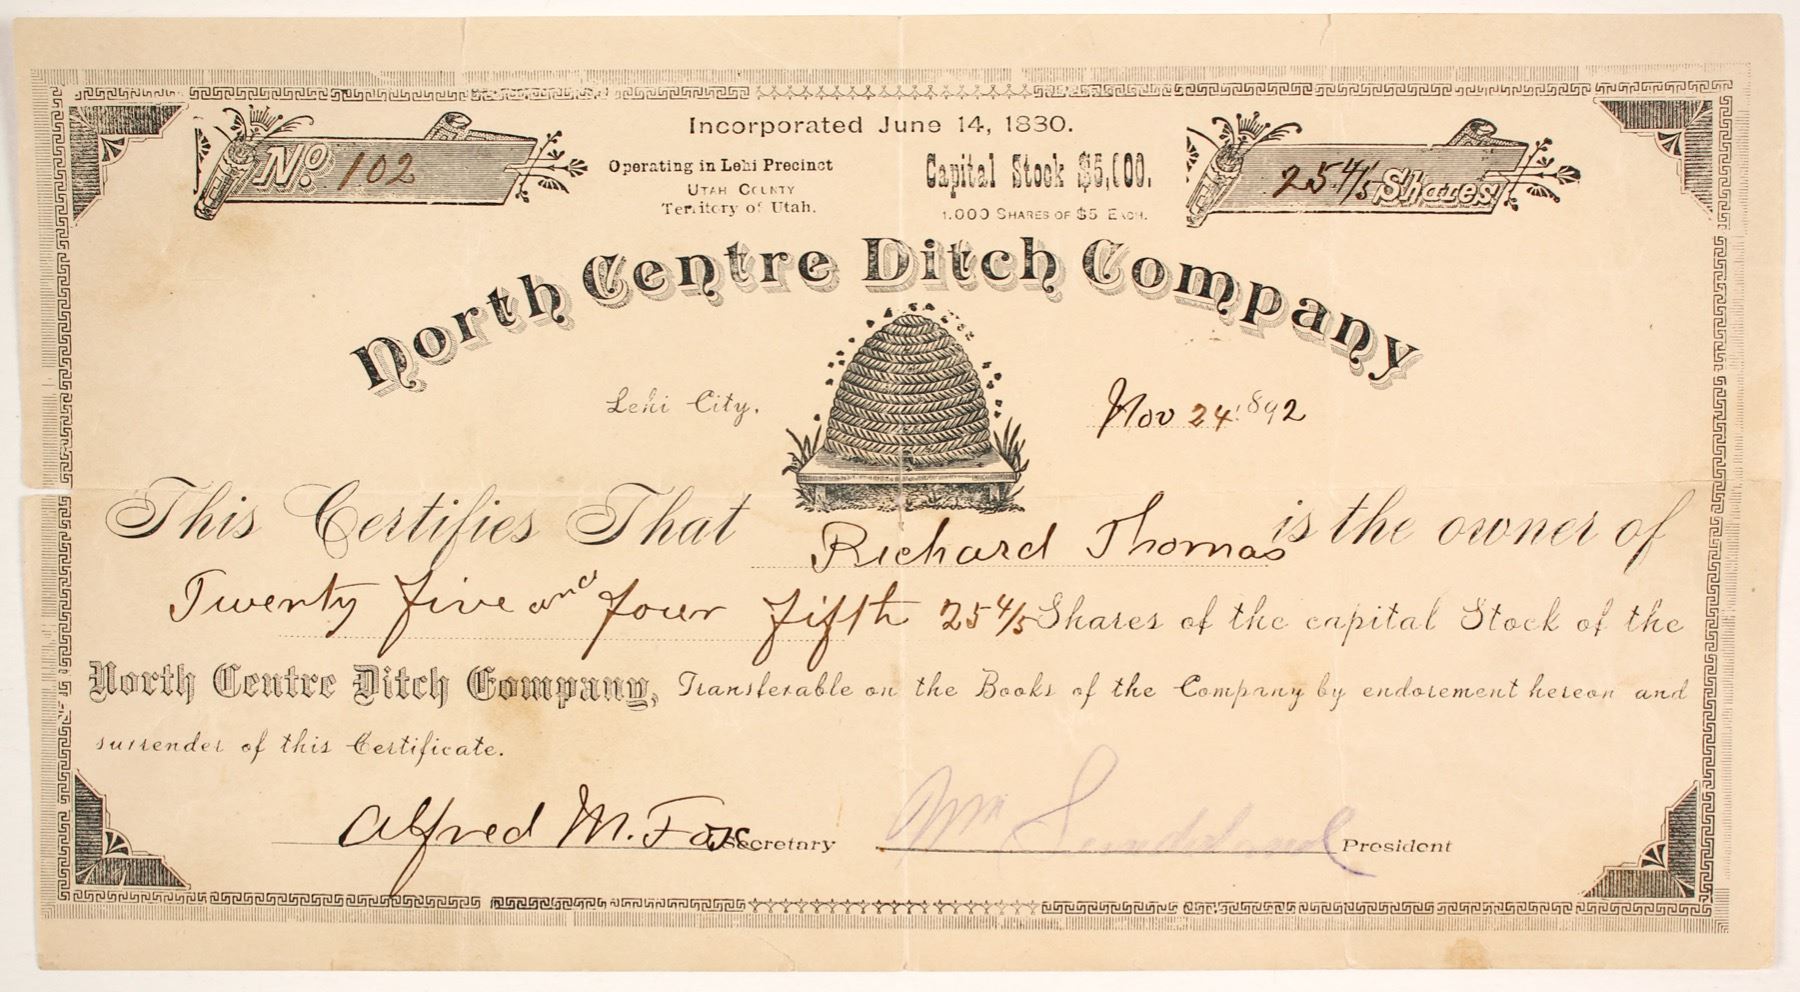 Incorporated June 14, 1880.
No. 102
Operating in Lehi Precinct
Utah County
Territory of Utah.
Capital Stock $5,000.
1,000 Shares of $5 Each.
25 4/5 Shares
North Centre Ditch Company
Lehi City, Nov 24 1892
This Certifies That Richard Thomas is the owner of
Twenty five and four fifth 25 4/5 Shares of the capital Stock of the
North Centre Ditch Company, Transferable on the Books of the Company by endorement hereon and
surrender of this Certificate.
Alfred M. Fox Secretary Wm President